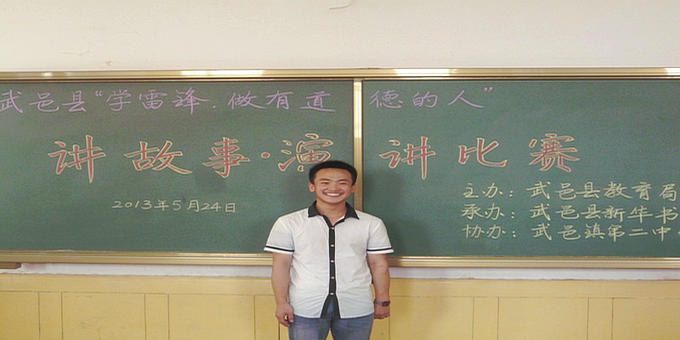 武邑县“学雷锋.做有道德的人”
讲故事·演讲比赛
2013年5月24日
主办:武邑县教育局
承办:武邑县新华书
协办:武邑镇第二中